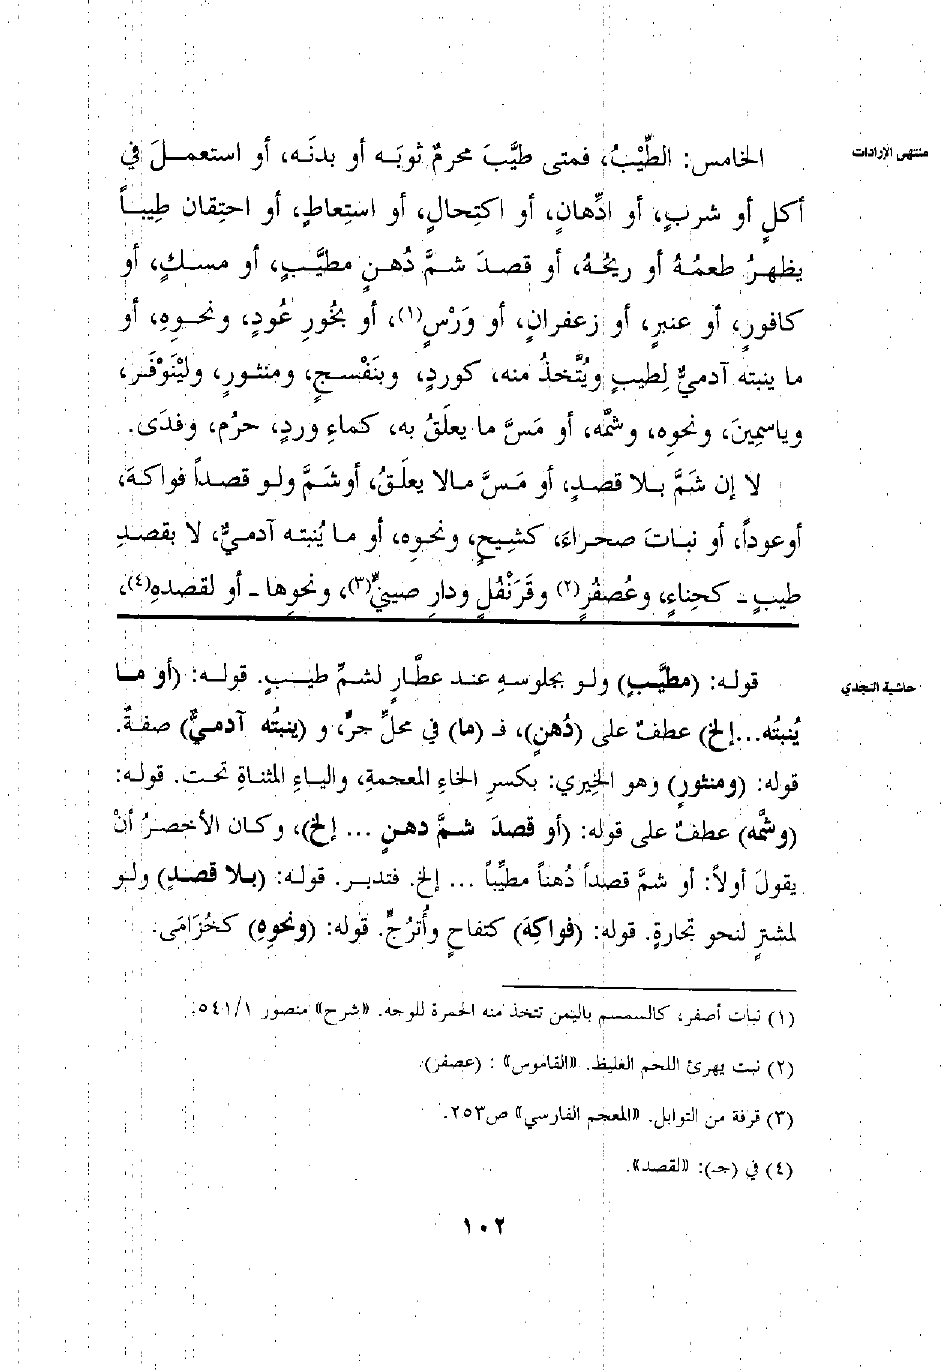 منتهى الإرادات
الخامس: الطِّيْبُ، فمتى طيَّبَ محرمٌ ثوبَه أو بدنَه، أو استعملَ في
أكلٍ أو شربٍ، أو ادِّهانٍ، أو اكتِحالٍ، أو استِعاطٍ، أو احتِقان طِيباً
يظهرُ طعمُهُ أو ريحُهُ، أو قصدَ شمَّ دُهنٍ مطيَّبٍ، أو مسكٍ، أو
كافورٍ، أو عنبرٍ، أو زعفرانٍ، أو وَرْسٍ(١)، أو بخُورِ عُودٍ، ونحوِهِ، أو
ما ينبته آدميٌّ لِطيبٍ ويُتَّخذُ منه، كوردٍ، وبنَفْسجٍ، ومنثورٍ، ولَيْنَوْفَرٍ،
وياسمِينَ، ونحوِه، وشمَّه، أو مَسَّ ما يعلَقُ به، كماءِ وردٍ، حرُم، وفدَى.
لا إن شَمَّ بلا قصدٍ، أو مَسَّ مالا يعلَقُ، أوشَمَّ ولو قصداً فواكهَ،
أوعوداً، أو نباتَ صحراءَ، كشِيحٍ، ونحوِه، أو ما يُنبته آدميٌّ، لا بقصدِ
طيبٍ - كحِناءٍ، وعُصفُرٍ(٢) وقَرَنْفُلٍ ودارِ صينيٍّ(٣)، ونحوِها - أو لقصدهِ(٤)،
حاشية النجدي
قوله: (مطيَّبٍ) ولو بجلوسهِ عند عطَّارٍ لشمِّ طيبٍ. قوله: (أو ما
يُنبتُه...إلخ) عطفٌ على (دُهنٍ)، فـ (ما) في محلِّ جرٍّ، و (ينبتُه آدميٌّ) صفةٌ.
قوله: (ومنثورٍ) وهو الخِيري: بكسرِ الخاءِ المعجمةِ، والياءِ المثناةِ تحت. قوله:
(وشمَّه) عطفٌ على قوله: (أو قصدَ شمَّ دهنٍ ... إلخ)، وكان الأخصرُ أنْ
يقولَ أولاً: أو شمَّ قصداً دُهناً مطيِّباً ... إلخ. فتدبر. قوله: (بلا قصدٍ) ولو
لمشترٍ لنحو تجارةٍ. قوله: (فواكِهَ) كتفاحٍ وأُترُجٍّ. قوله: (ونحوِهِ) كخُزامَى.
(١) نبات أصفر، كالسمسم باليمن تتخذ منه الحمرة للوجه. «شرح» منصور ٥٤١/١.
(٢) نبت يهرئ اللحم الغليظ. «القاموس» : (عصفر).
(٣) قرفة من التوابل. «المعجم الفارسي» ص٢٥٣.
(٤) في (جـ): «لقصد».
١٠٢